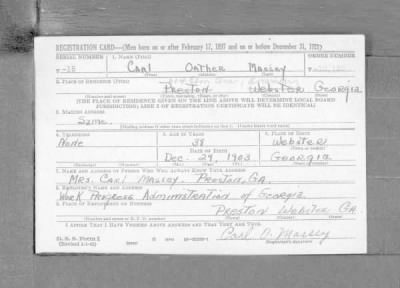 REGISTRATION CARD—(Men born on or after February 17, 1897 and on or before December 31, 1921)
SERIAL NUMBER 1. NAME (Print) ORDER NUMBER
Carl Onther Massey
(First) (Middle) (Last)
2. PLACE OF RESIDENCE (Print)
Preston Webster Georgia
(THE PLACE OF RESIDENCE GIVEN ON THE LINE ABOVE WILL DETERMINE LOCAL BOARD
JURISDICTION; LINE 2 OF REGISTRATION CERTIFICATE WILL BE IDENTICAL)
3. MAILING ADDRESS
Same
(Mailing address if other than place indicated on line 2. If same insert word same)
4. TELEPHONE 5. AGE IN YEARS 6. PLACE OF BIRTH
None 38 Webster
DATE OF BIRTH (Town or county)
Dec. 29, 1903 Georgia
7. NAME AND ADDRESS OF PERSON WHO WILL ALWAYS KNOW YOUR ADDRESS
Mrs. Carl Massey Preston, GA.
8. EMPLOYER'S NAME AND ADDRESS
Work Progress Administration of Georgia
9. PLACE OF EMPLOYMENT OR BUSINESS
Preston Webster GA
(Number and street or R. F. D. number) (Town) (County) (State)
I AFFIRM THAT I HAVE VERIFIED ABOVE ANSWERS AND THAT THEY ARE TRUE.
D. S. S. Form 1
Carl O. Massey
(Registrant's signature)